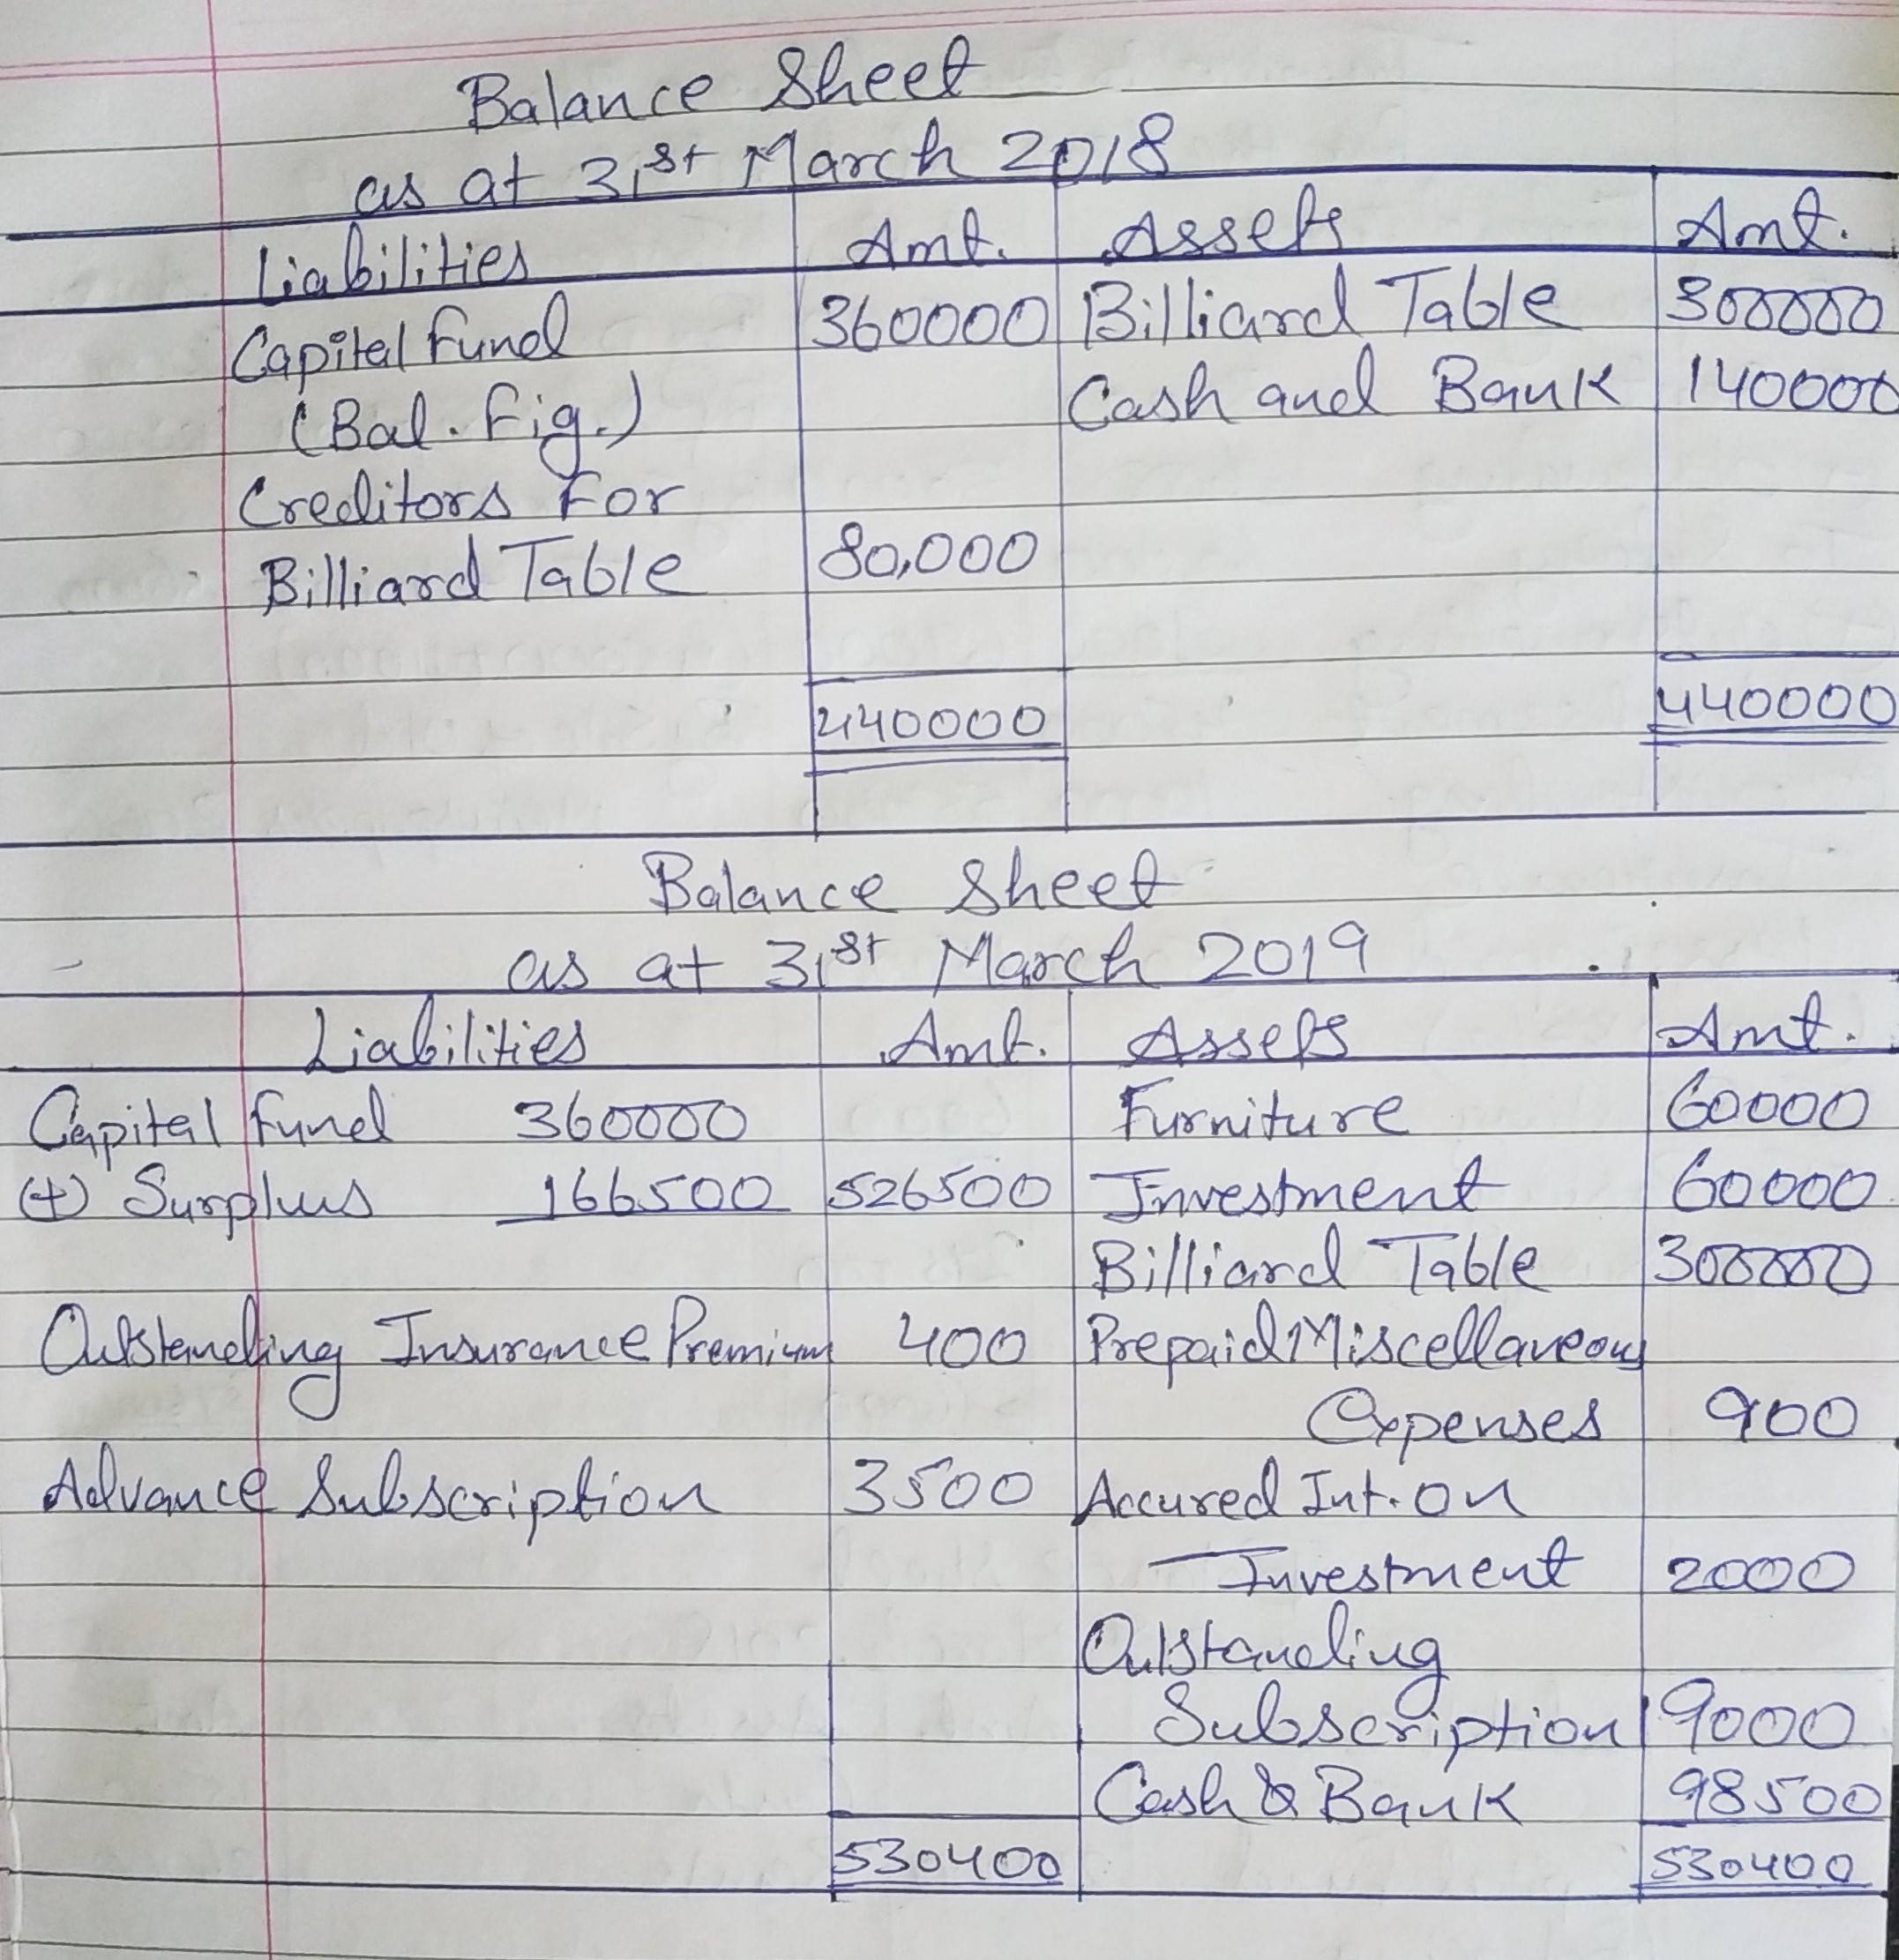 Balance Sheet
as at 31st March 2018
Liabilities Amt. Assets Amt.
Capital Fund 360000 Billiard Table 300000
(Bal. Fig.) Cash and Bank 140000
Creditors For
Billiard Table 80,000
440000 440000
Balance Sheet
as at 31st March 2019
Liabilities Amt. Assets Amt.
Capital Fund 360000 Furniture 60000
(+) Surplus 166500 526500 Investment 60000
Billiard Table 300000
Outstanding Insurance Premium 400 Prepaid Miscellaneous
Expenses 900
Advance Subscription 3500 Accured Int. on
Investment 2000
Outstanding
Subscription 9000
Cash & Bank 98500
530400 530400